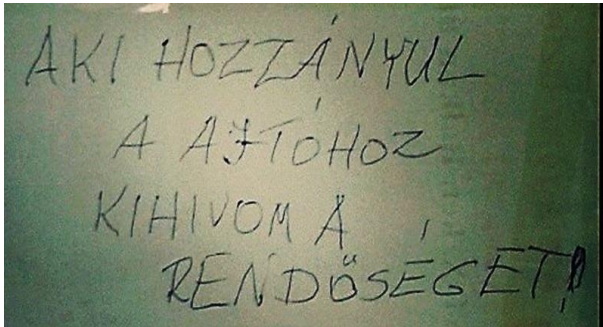 AKI HOZZÁNYÚL
A AJTÓHOZ
KIHIVOM A
RENDŐSÉGET!